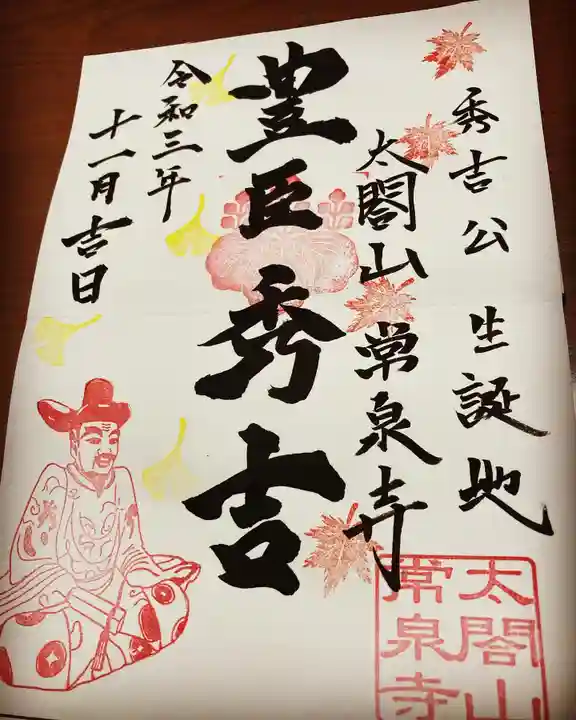 秀吉公 生誕地
太閤山 常泉寺
豊臣秀吉
令和三年
十一月吉日
太閤山
常泉寺